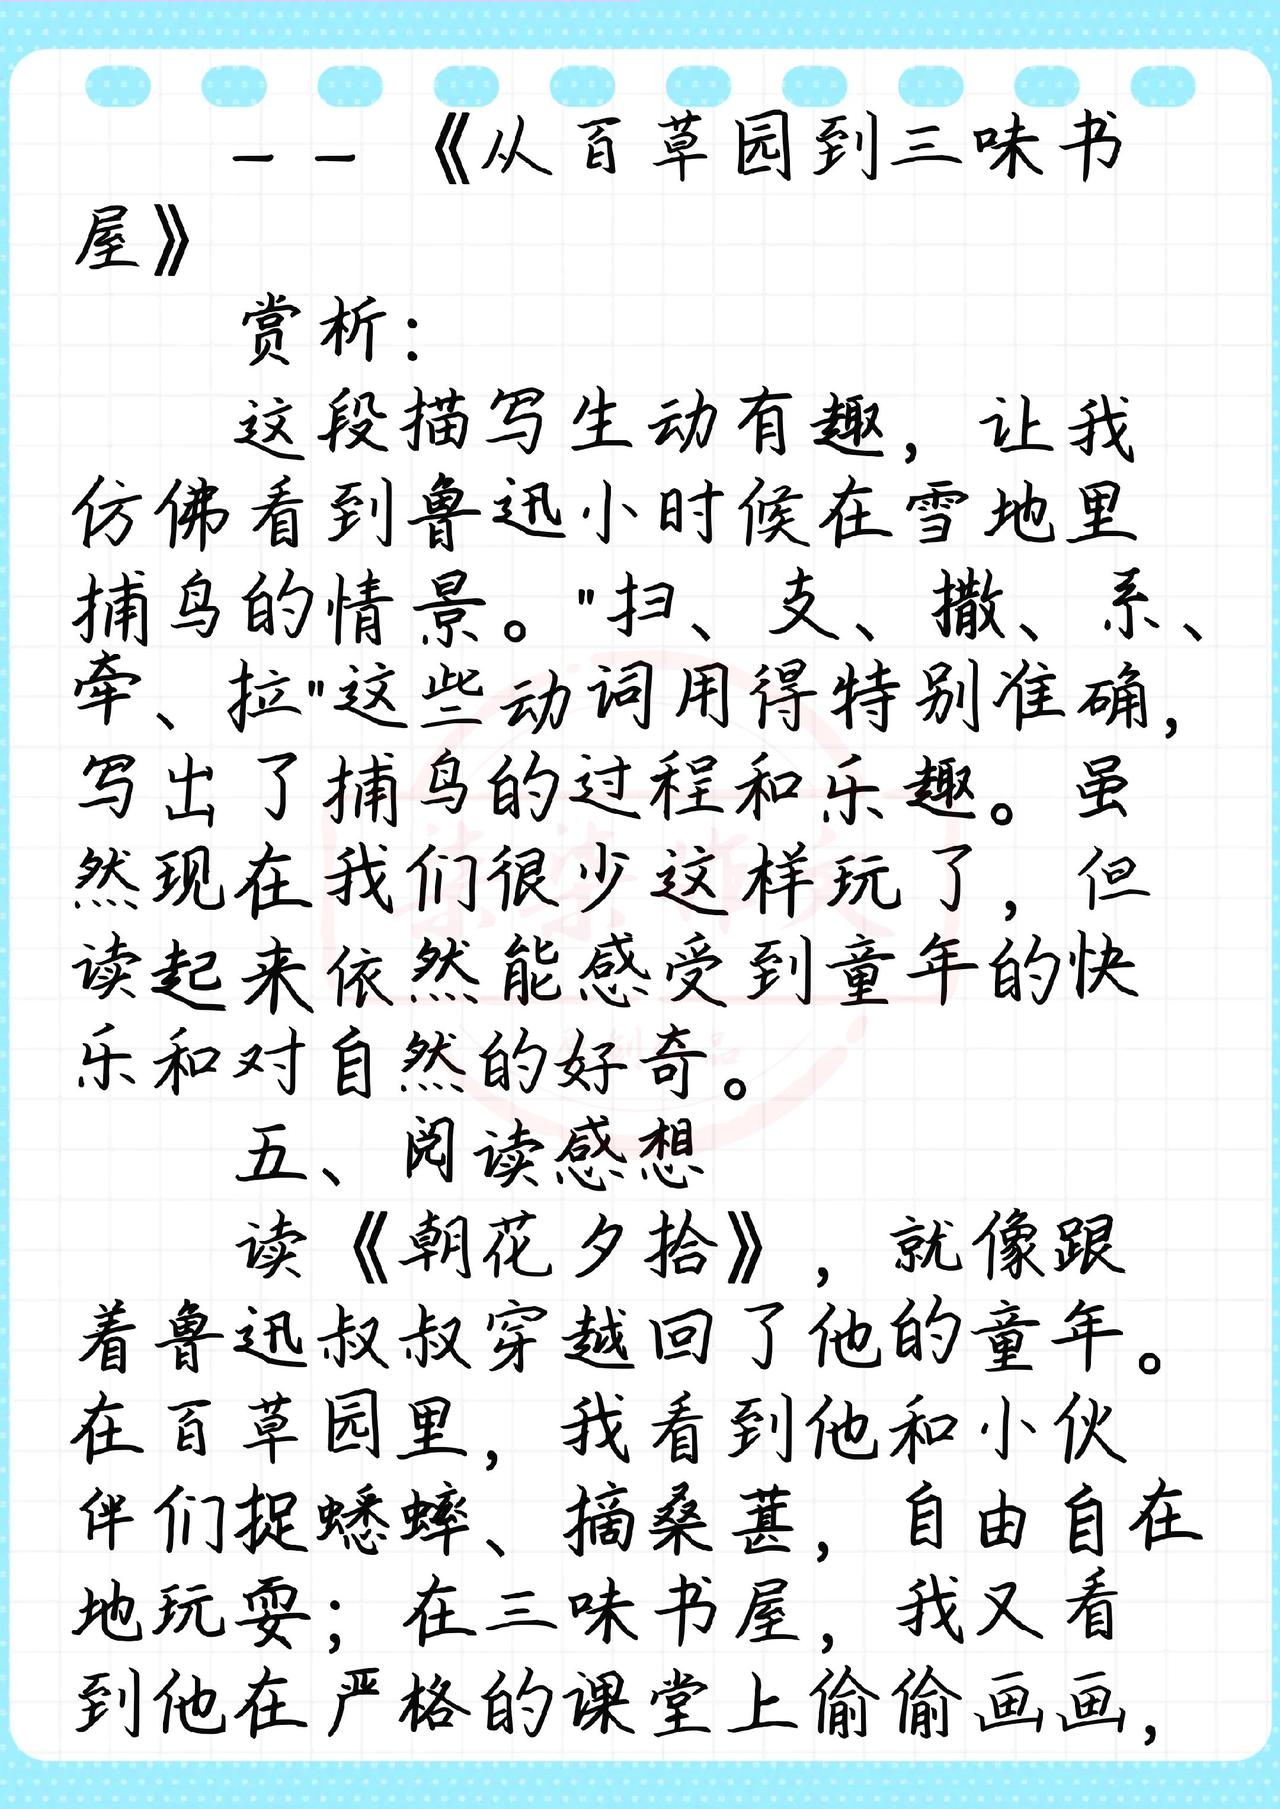 －－《从百草园到三味书
屋》
赏析：
这段描写生动有趣，让我
仿佛看到鲁迅小时候在雪地里
捕鸟的情景。"扫、支、撒、系、
牵、拉"这些动词用得特别准确，
写出了捕鸟的过程和乐趣。虽
然现在我们很少这样玩了，但
读起来依然能感受到童年的快
乐和对自然的好奇。
五、阅读感想
读《朝花夕拾》，就像跟
着鲁迅叔叔穿越回了他的童年。
在百草园里，我看到他和小伙
伴们捉蟋蟀、摘桑葚，自由自在
地玩耍；在三味书屋，我又看
到他在严格的课堂上偷偷画画，